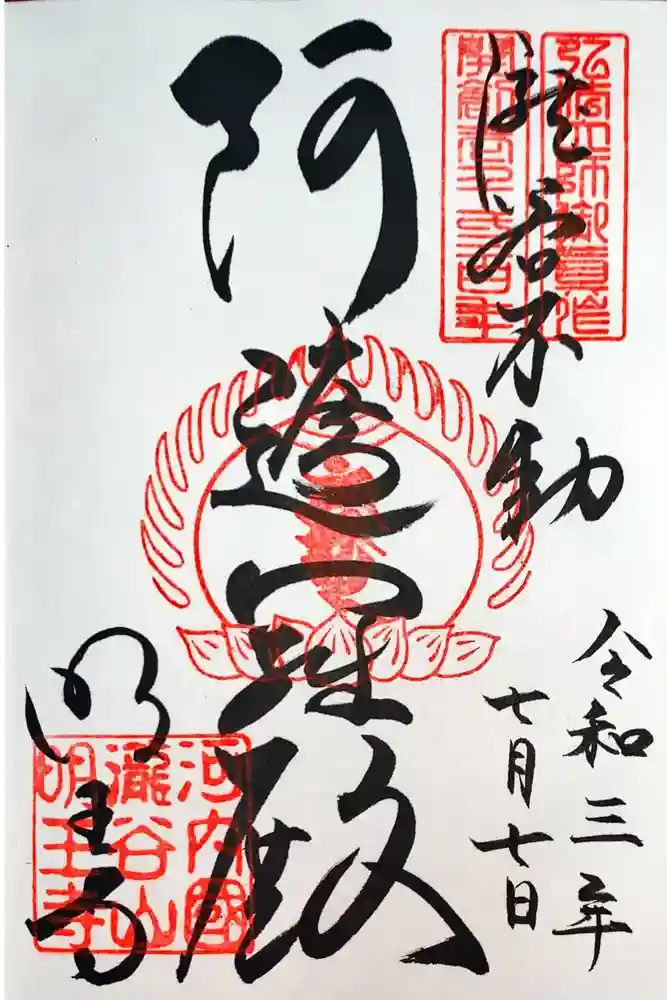 弘法大師御眞作
瀧谷不動
令和三年
七月七日
阿遮羅殿
明王寺
河内國
瀧谷山
明王寺